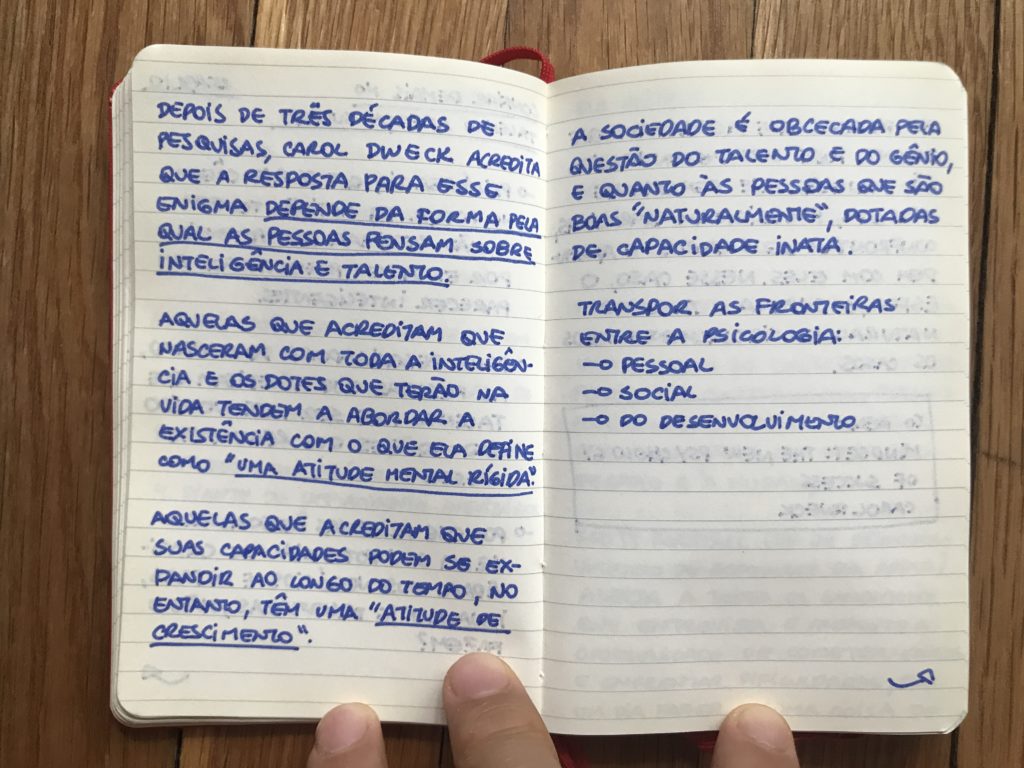 DEPOIS DE TRÊS DÉCADAS DE
PESQUISAS, CAROL DWECK ACREDITA
QUE A RESPOSTA PARA ESSE
ENIGMA DEPENDE DA FORMA PELA
QUAL AS PESSOAS PENSAM SOBRE
INTELIGÊNCIA E TALENTO.
AQUELAS QUE ACREDITAM QUE
NASCERAM COM TODA A INTELIGÊN-
CIA E OS DOTES QUE TERÃO NA
VIDA TENDEM A ABORDAR A
EXISTÊNCIA COM O QUE ELA DEFINE
COMO "UMA ATITUDE MENTAL RÍGIDA".
AQUELAS QUE ACREDITAM QUE
SUAS CAPACIDADES PODEM SE EX-
PANDIR AO LONGO DO TEMPO, NO
ENTANTO, TÊM UMA "ATITUDE DE
CRESCIMENTO".
A SOCIEDADE É OBCECADA PELA
QUESTÃO DO TALENTO E DO GÊNIO,
E QUANTO ÀS PESSOAS QUE SÃO
BOAS "NATURALMENTE", DOTADAS
DE CAPACIDADE INATA.
TRANSPOR AS FRONTEIRAS
ENTRE A PSICOLOGIA:
→ PESSOAL
→ SOCIAL
→ DO DESENVOLVIMENTO